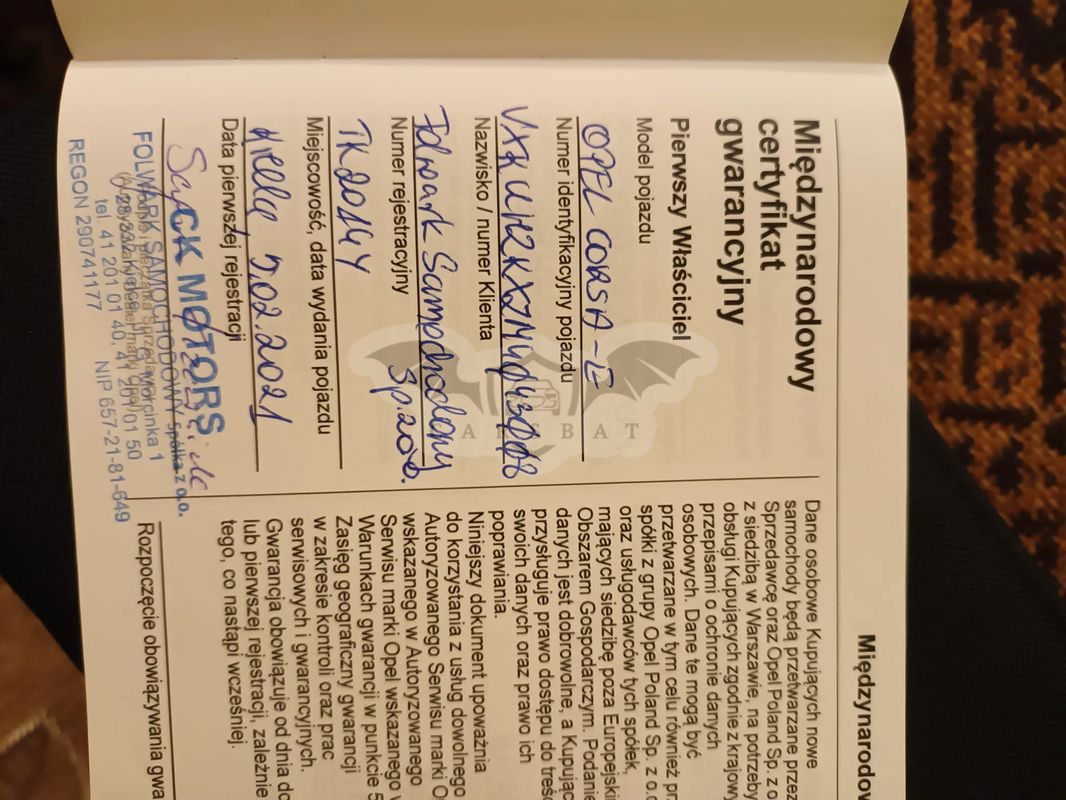 Międzynarodowy
certyfikat
gwarancyjny
Pierwszy Właściciel
OPEL CORSA-E
Model pojazdu
Numer identyfikacyjny pojazdu
Nazwisko / numer Klienta
Sp. z o.o.
Numer rejestracyjny
TK2014Y
Miejscowość, data wydania pojazdu
5.02.2021
Data pierwszej rejestracji
CK MOTORS
FOLWARK SAMOCHODOWY spółka z o.o.
tel. 41 201 01 40, 41 201 01 50
REGON 290741177 NIP 657-21-81-649
ARESBAT
Międzynarodow
Dane osobowe Kupujących nowe
samochody będą przetwarzane przez
Sprzedawcę oraz Opel Poland Sp. z o
z siedzibą w Warszawie, na potrzeby
obsługi Kupujących zgodnie z krajowy
przepisami o ochronie danych
osobowych. Dane te mogą być
przetwarzane w tym celu również prz
spółki z grupy Opel Poland Sp. z o.o
oraz usługodawców tych spółek,
mających siedzibę poza Europejskim
Obszarem Gospodarczym. Podanie
danych jest dobrowolne, a Kupując
przysługuje prawo dostępu do treśc
swoich danych oraz prawo ich
poprawiania.
Niniejszy dokument upoważnia
do korzystania z usług dowolnego
Autoryzowanego Serwisu marki O
wskazanego w Autoryzowanego
Serwisu marki Opel wskazanego w
Warunkach gwarancji w punkcie 5
Zasięg geograficzny gwarancji
w zakresie kontroli oraz prac
serwisowych i gwarancyjnych.
Gwarancja obowiązuje od dnia do
lub pierwszej rejestracji, zależnie
tego, co nastąpi wcześniej.
Rozpoczęcie obowiązywania gwa